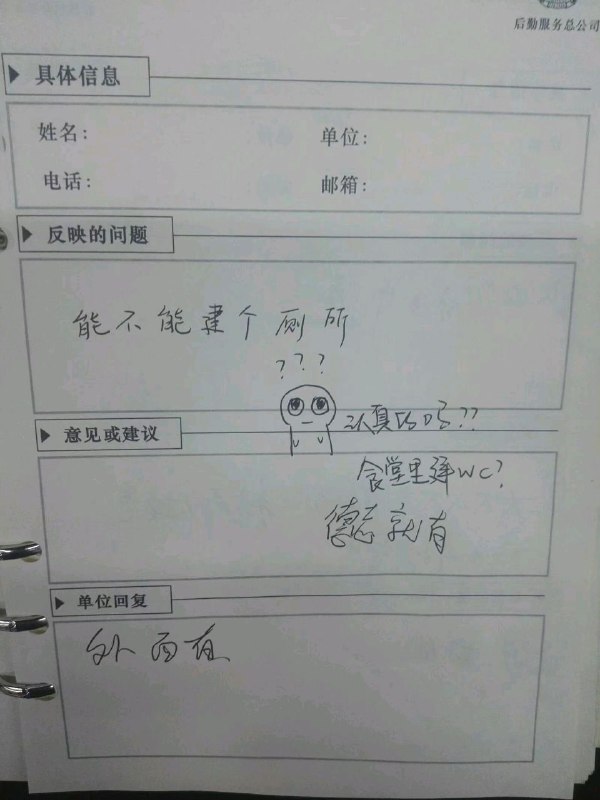 后勤服务总公司
具体信息
姓名：
单位：
电话：
邮箱：
反映的问题
能不能建个厕所
???
认真的吗??
意见或建议
食堂里建WC?
德志就有
单位回复
外面有